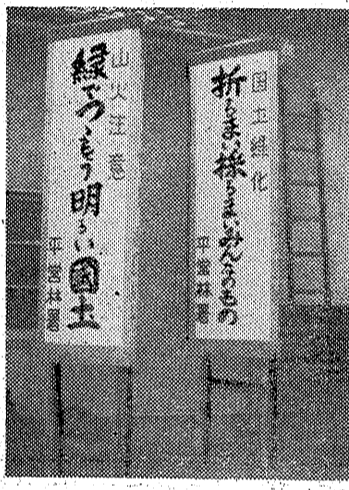 国土緑化
折るまい採るまいみんなのもの
平営林署
山火注意
緑でつゝもう明るい國土
平営林署